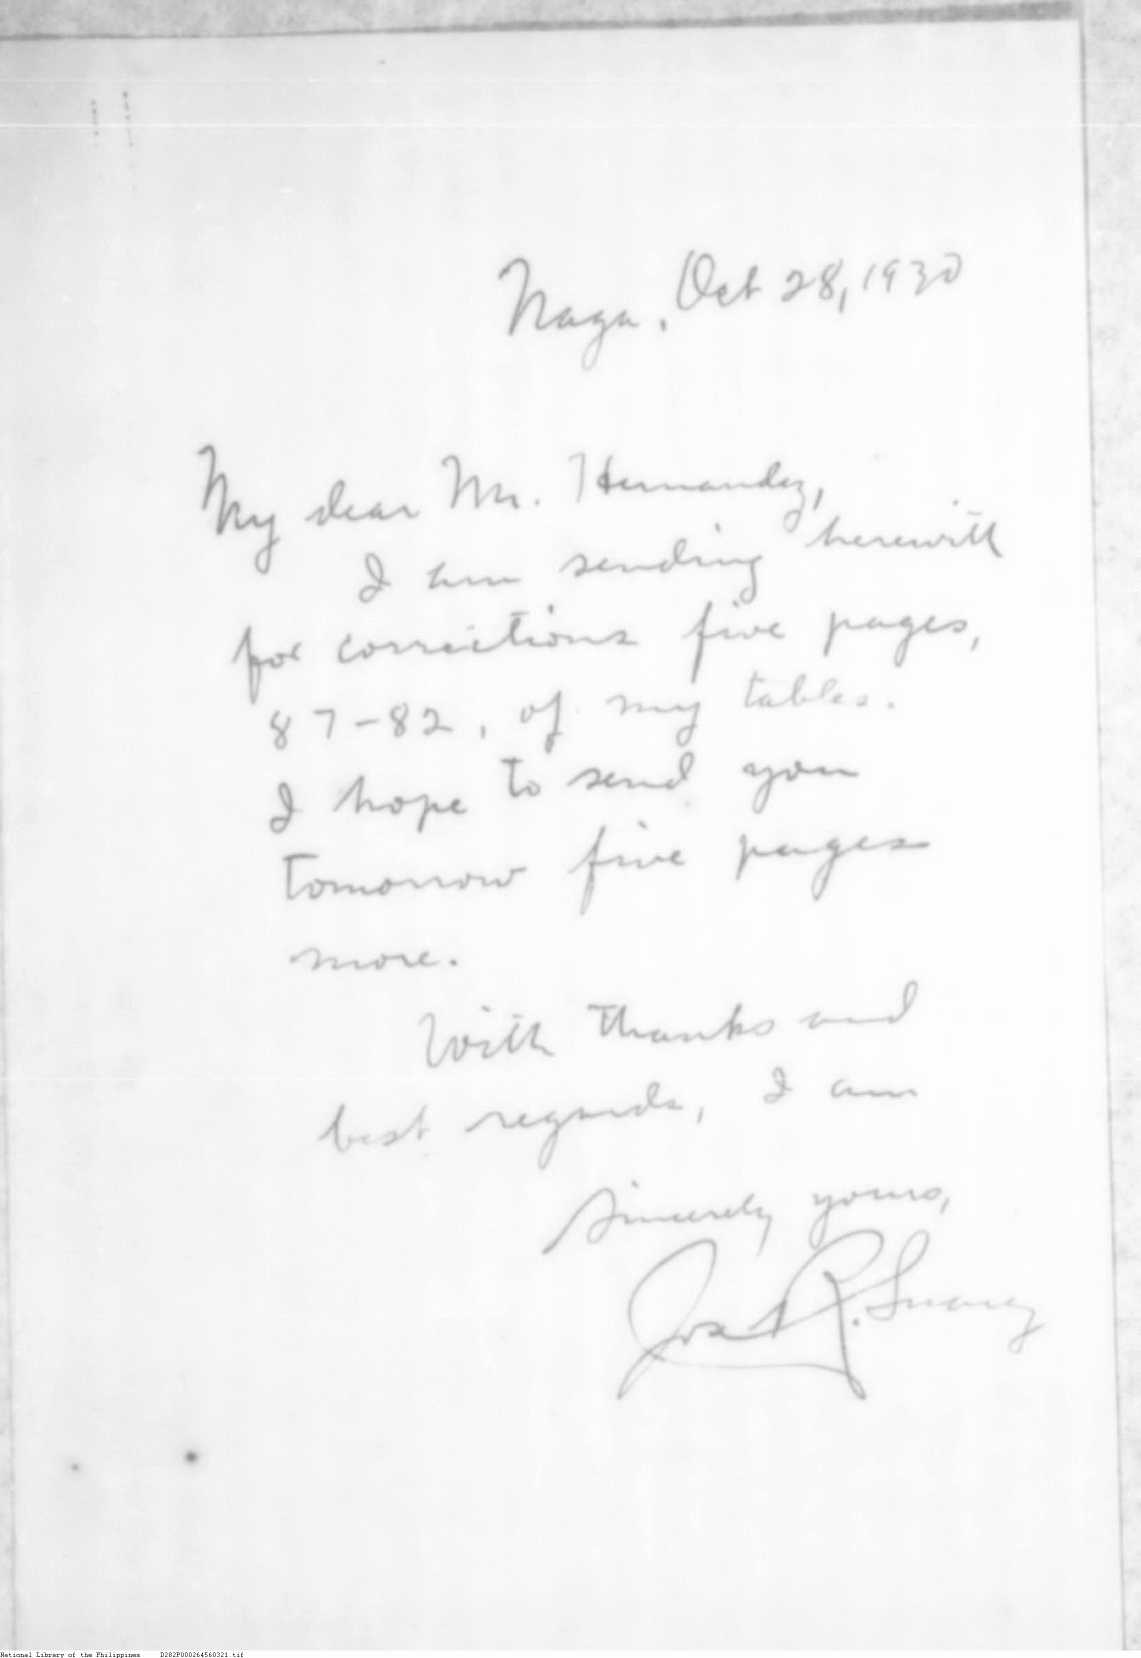 Naga, Oct 28, 1930
My dear Mr. Hernandez,
I am sending herewith
for corrections five pages,
87-82, of my tables.
I hope to send you
tomorrow five pages
more.
With thanks and
best regards, I am
Sincerely yours,
Jose R. Suarez
National Library of the Philippines D282P000264560321.tif